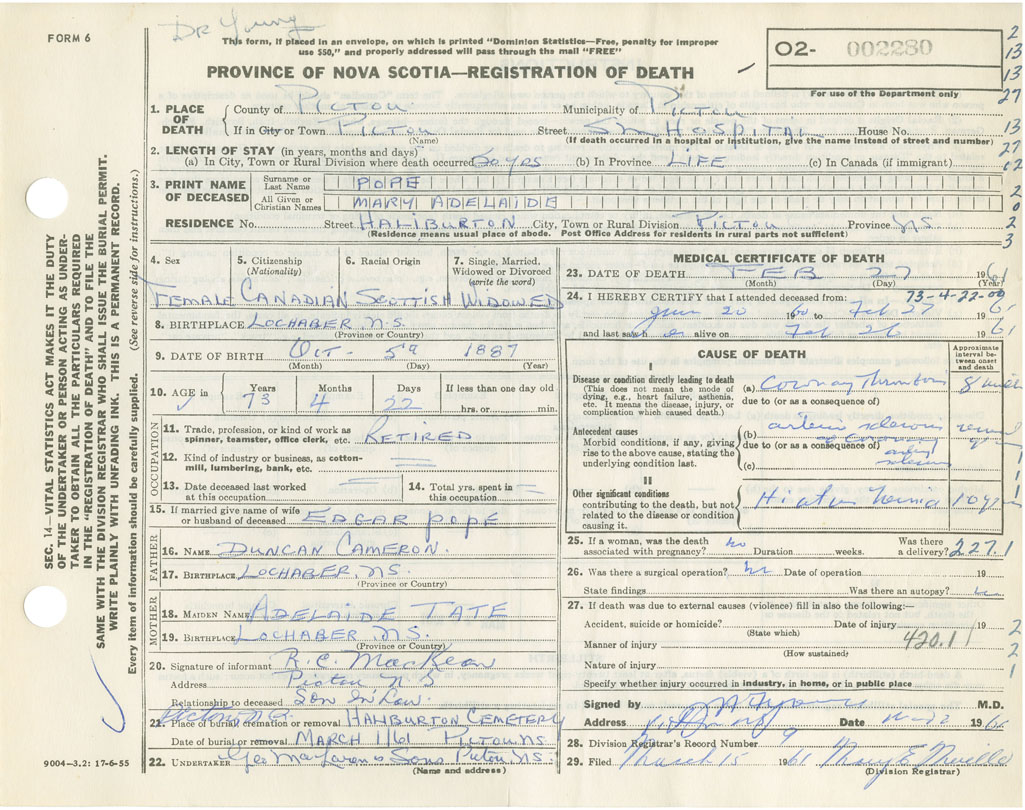 FORM 6
Dr Young
This form, if placed in an envelope, on which is printed "Dominion Statistics—Free, penalty for improper
use $50," and properly addressed will pass through the mail "FREE"
PROVINCE OF NOVA SCOTIA—REGISTRATION OF DEATH
02- 002280
For use of the Department only
2
13
13
27
13
27
02
2
0
2
3
SEC. 14—VITAL STATISTICS ACT MAKES IT THE DUTY
OF THE UNDERTAKER OR PERSON ACTING AS UNDER-
TAKER TO OBTAIN ALL THE PARTICULARS REQUIRED
IN THE "REGISTRATION OF DEATH" AND TO FILE THE
SAME WITH THE DIVISION REGISTRAR WHO SHALL ISSUE THE BURIAL PERMIT.
WRITE PLAINLY WITH UNFADING INK. THIS IS A PERMANENT RECORD.
Every item of information should be carefully supplied. (See reverse side for instructions.)
1. PLACE OF DEATH County of PICTOU Municipality of PICTOU
If in City or Town PICTOU Street SM HOSPITAL House No.
(Name) (If death occurred in a hospital or institution, give the name instead of street and number)
2. LENGTH OF STAY (in years, months and days)
(a) In City, Town or Rural Division where death occurred 20 YRS (b) In Province LIFE (c) In Canada (if immigrant)
3. PRINT NAME OF DECEASED Surname or Last Name POPE
All Given or Christian Names MARY ADELAIDE
RESIDENCE No. Street HALIBURTON City, Town or Rural Division PICTOU Province NS
(Residence means usual place of abode. Post Office Address for residents in rural parts not sufficient)
4. Sex 5. Citizenship (Nationality) 6. Racial Origin 7. Single, Married, Widowed or Divorced (write the word)
FEMALE CANADIAN SCOTTISH WIDOWED
8. BIRTHPLACE LOCHABER N.S.
(Province or Country)
9. DATE OF BIRTH OCT- 5th 1887
(Month) (Day) (Year)
10. AGE in Years Months Days If less than one day old
73 4 22 hrs. or min.
OCCUPATION
11. Trade, profession, or kind of work as
spinner, teamster, office clerk, etc. RETIRED
12. Kind of industry or business, as cotton-
mill, lumbering, bank, etc.
13. Date deceased last worked at this occupation 14. Total yrs. spent in this occupation
15. If married give name of wife
or husband of deceased EDGAR POPE
FATHER
16. NAME DUNCAN CAMERON.
17. BIRTHPLACE LOCHABER, NS.
(Province or Country)
MOTHER
18. MAIDEN NAME ADELAIDE TATE
19. BIRTHPLACE LOCHABER N.S.
(Province or Country)
20. Signature of informant R.C. MacKean
Address Pictou N S
Relationship to deceased Son In Law.
21. Place of burial cremation or removal HALIBURTON CEMETERY
Date of burial or removal MARCH 1/61 PICTOU NS.
22. UNDERTAKER Geo MacLaren & Sons Pictou NS.
(Name and address)
9004—3.2: 17-6-55
MEDICAL CERTIFICATE OF DEATH
23. DATE OF DEATH FEB 27 1961
(Month) (Day) (Year)
24. I HEREBY CERTIFY that I attended deceased from: 73-4-22-00
Jan 20 1960 to Feb 27 1961
and last saw her alive on Feb 26 1961
CAUSE OF DEATH
Approximate interval between onset and death
I
Disease or condition directly leading to death
(This does not mean the mode of
dying, e.g., heart failure, asthenia,
etc. It means the disease, injury, or
complication which caused death.)
(a) Coronary Thrombosis 8
due to (or as a consequence of)
Antecedent causes
Morbid conditions, if any, giving
rise to the above cause, stating the
underlying condition last.
(b) arterio sclerosis
due to (or as a consequence of)
(c)
II
Other significant conditions
contributing to the death, but not
related to the disease or condition
causing it.
Hiatus hernia 10 yrs
25. If a woman, was the death
associated with pregnancy? no Duration weeks. Was there a delivery? 227.1
26. Was there a surgical operation? no Date of operation 19
State findings Was there an autopsy?
27. If death was due to external causes (violence) fill in also the following:—
Accident, suicide or homicide? Date of injury 19
(State which)
Manner of injury 420.1
(How sustained)
Nature of injury
Specify whether injury occurred in industry, in home, or in public place
Signed by M.D.
Address Date
28. Division Registrar's Record Number 9
29. Filed March 15 1961
(Division Registrar)